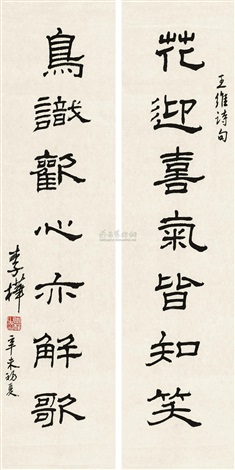 花迎喜氣皆知笑
王維詩句
鳥識歡心亦解歌
李樺
辛未初夏